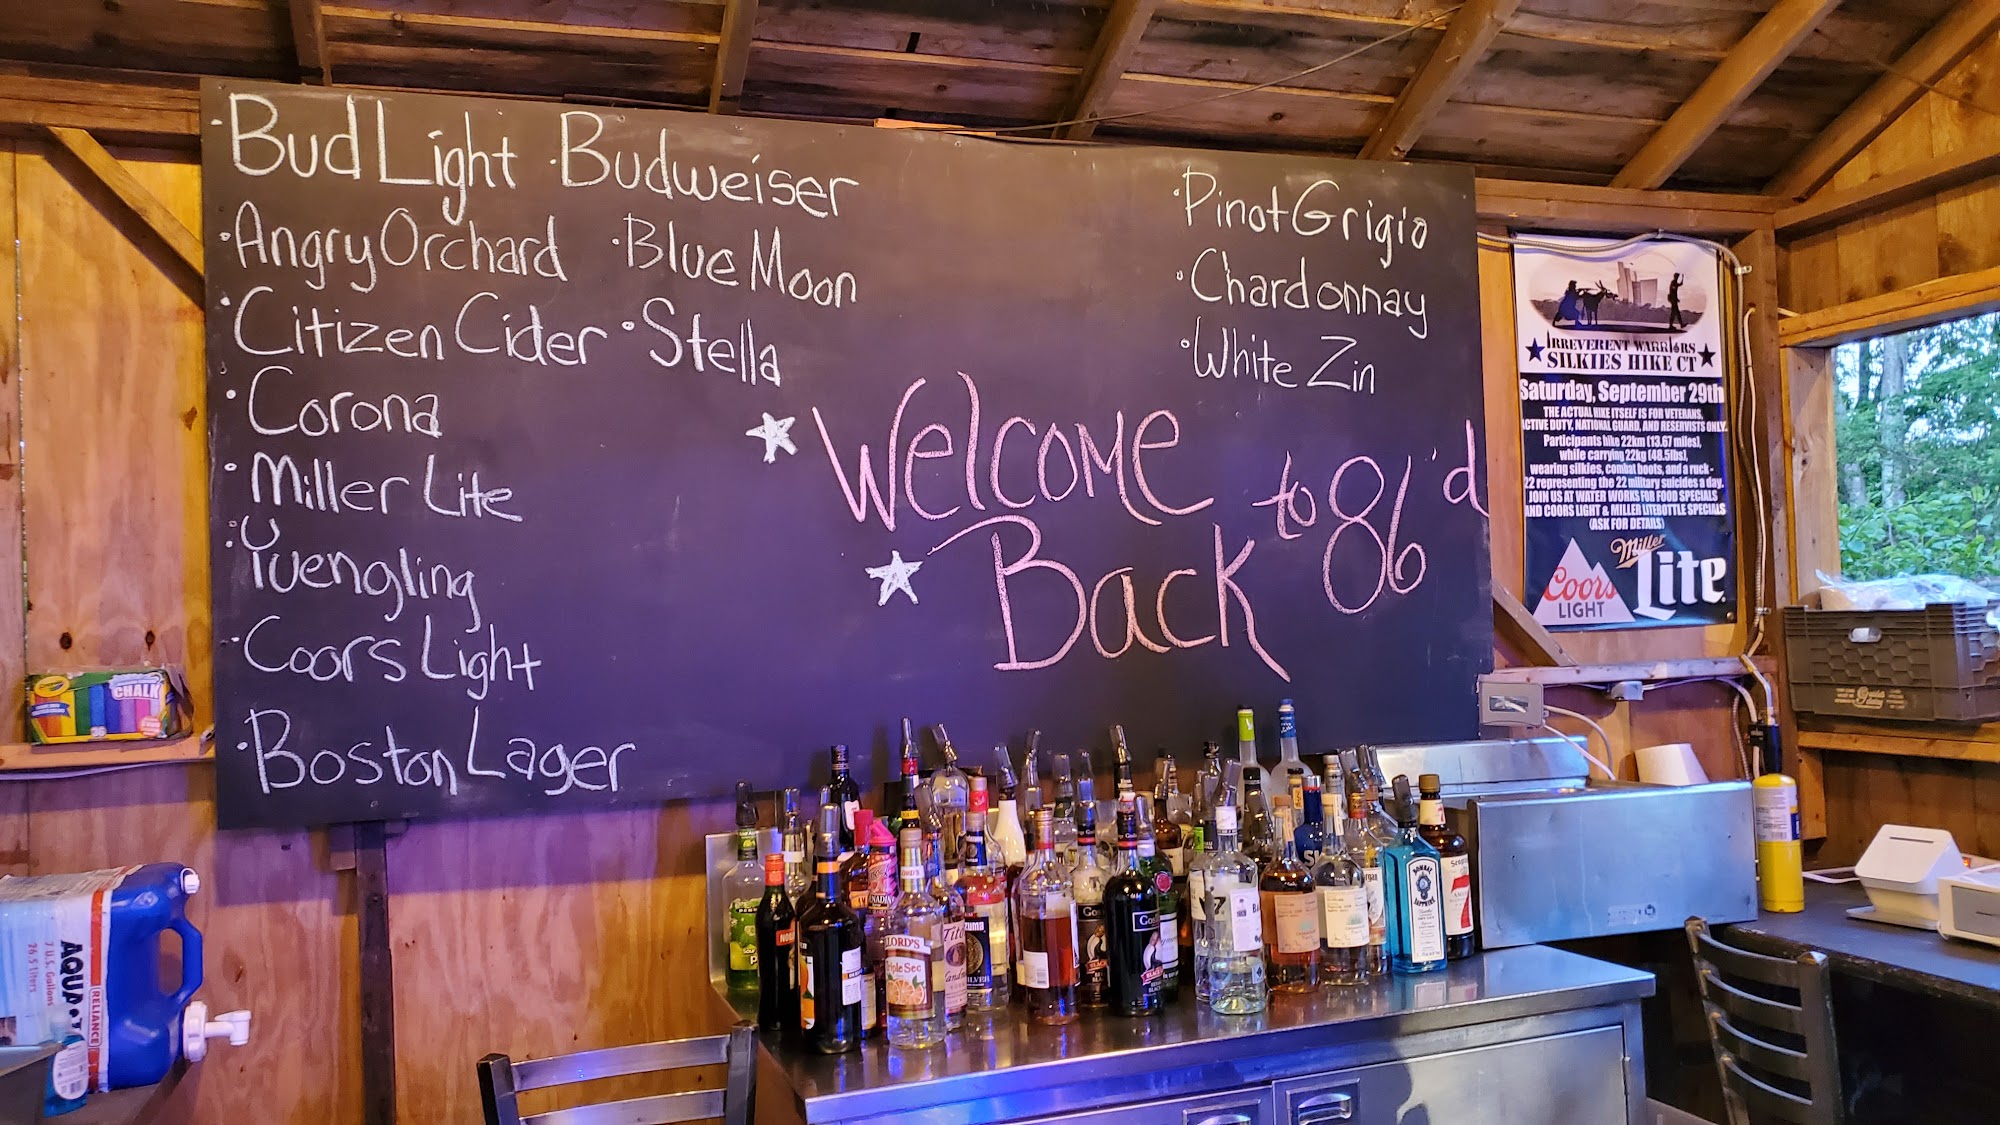 ·Bud Light ·Budweiser
·Angry Orchard ·Blue Moon
·Citizen Cider ·Stella
·Corona
·Miller Lite
·Yuengling
·Coors Light
·Boston Lager
·Pinot Grigio
·Chardonnay
·White Zin
Welcome
Back to 86'd
IRREVERENT WARRIORS
SILKIES HIKE CT
Saturday, September 29th
THE ACTUAL HIKE ITSELF IS FOR VETERANS,
ACTIVE DUTY, NATIONAL GUARD, AND RESERVISTS ONLY.
Participants hike 22km (13.67 miles),
while carrying 22kg (48.5lbs),
wearing silkies, combat boots, and a ruck -
22 representing the 22 military suicides a day.
JOIN US AT WATER WORKS FOR FOOD SPECIALS
AND COORS LIGHT & MILLER LITE BOTTLE SPECIALS
(ASK FOR DETAILS)
Coors
LIGHT
Miller
Lite
CHALK
AQUA
RELIANCE
7 U.S. Gallons
26.5 Liters
Triple Sec
BOMBAY
SAPPHIRE